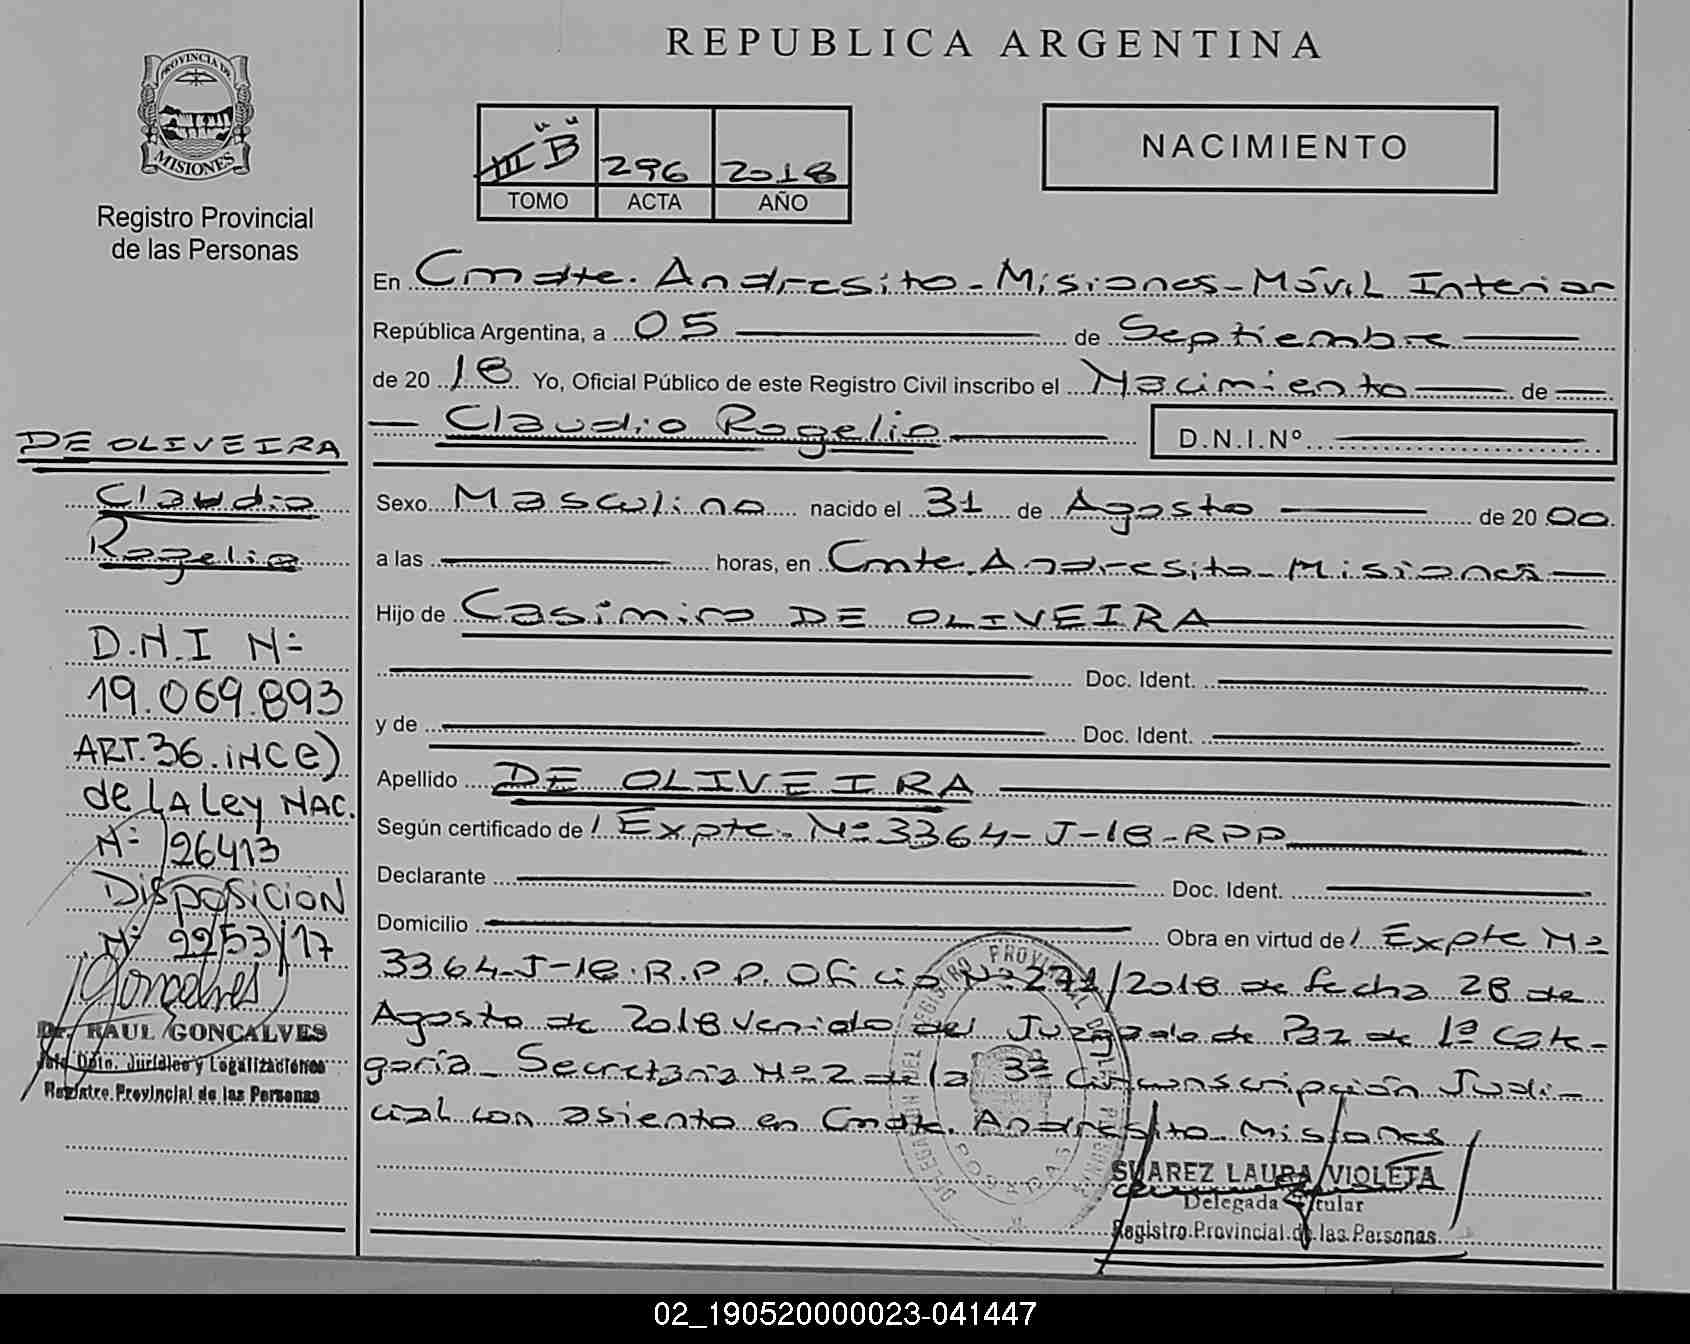 REPUBLICA ARGENTINA
PROVINCIA DE
MISIONES
Registro Provincial
de las Personas
III "B" 296 2018
TOMO ACTA AÑO
NACIMIENTO
En Cmdte. Andresito - Misiones - Móvil Interior
República Argentina, a 05 de Septiembre
de 20 18 Yo, Oficial Público de este Registro Civil inscribo el Nacimiento de
Claudio Rogelio D.N.I.Nº
Sexo Masculino nacido el 31 de Agosto de 20 00
a las horas, en Cmte. Andresito - Misiones
Hijo de Casimiro DE OLIVEIRA
Doc. Ident.
y de Doc. Ident.
Apellido DE OLIVEIRA
Según certificado de / Expte. Nº 3364-J-18-RPP
Declarante Doc. Ident.
Domicilio Obra en virtud de / Expte Nº
3364-J-18-R.P.P. Oficio Nº 271/2018 de fecha 28 de
Agosto de 2018 venido del Juzgado de Paz de 1ª Cate-
goría - Secretaría Nº 2 de la 3ª Circunscripción Judi-
cial con asiento en Cmdte. Andresito - Misiones
SUAREZ LAURA VIOLETA
Delegada Titular
Registro Provincial de las Personas
DE OLIVEIRA
Claudio
Rogelio
D.N.I Nº
19.069.893
ART.36.iNC e)
de LA Ley NAC.
Nº 26413
DisPOSiCiON
Nº 2253/17
Gonçalves
Dr. RAUL GONCALVES
Jefe Dpto. Jurídico y Legalizaciones
Registro Provincial de las Personas
02_190520000023-041447